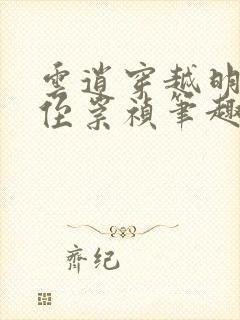 雲逍穿越明
侄崇禎筆趣
齊紀